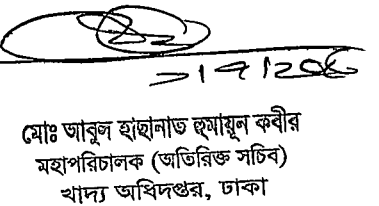 মোঃ আবুল হাছানাত হুমায়ূন কবীর
মহাপরিচালক (অতিরিক্ত সচিব)
খাদ্য অধিদপ্তর, ঢাকা